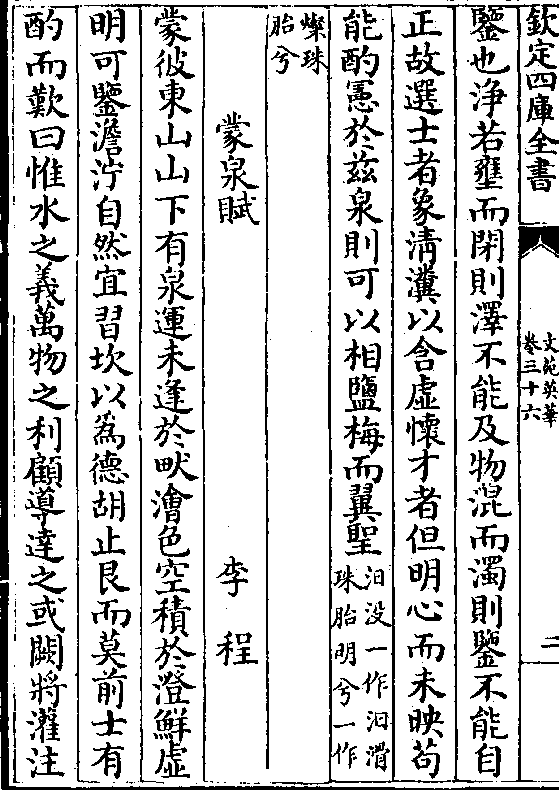 欽定四庫全書
文苑英華
卷三十六
二
鑒也浄若壅而閉則澤不能及物混而濁則鑒不能自
正故選士者象淸瀵以含虚懷才者但明心而未映茍
能酌憲於兹泉則可以相鹽梅而翼聖
汨没一作汨滑
珠胎明兮一作
燦珠
胎兮
蒙泉賦
李程
蒙彼東山山下有泉運未逢於畎澮色空積於澄鮮虚
明可鑒澹泞自然宜習坎以為德胡止艮而莫前士有
酌而歎曰惟水之義萬物之利顧導達之或闕將灌注